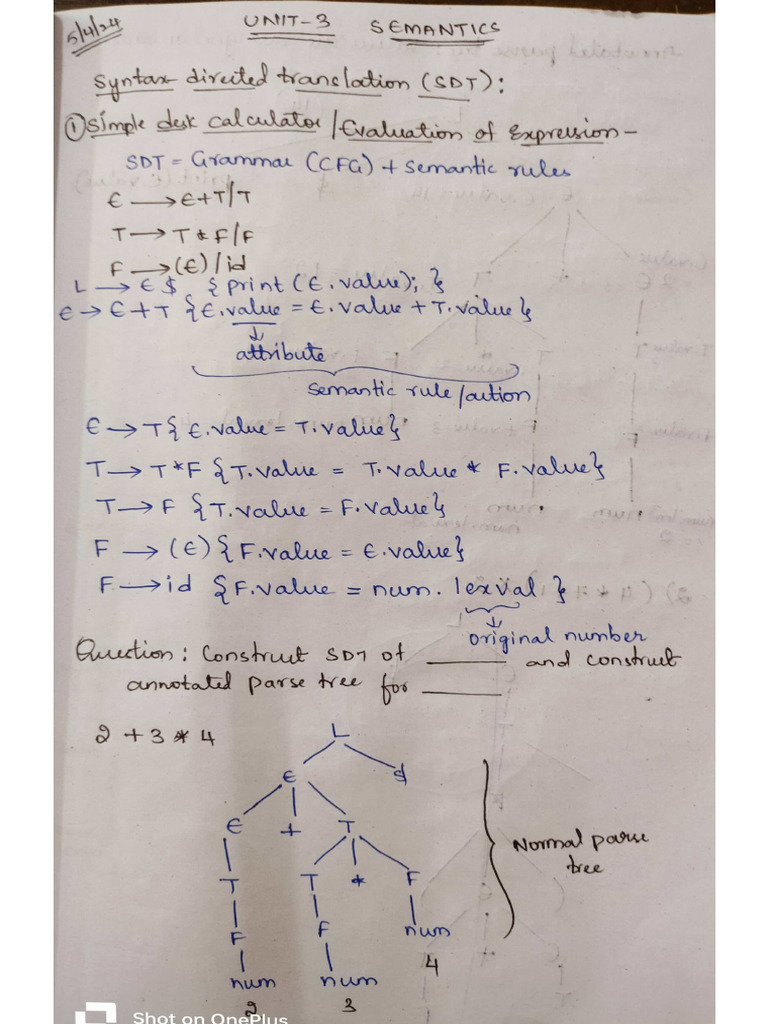 5/4/24
UNIT-3 SEMANTICS
Syntax directed translation (SDT):
① Simple desk calculator / Evaluation of Expression -
SDT = Grammar (CFG) + Semantic rules
E → E+T/T
T → T * F/F
F → (E)/id
L → E $ {print (E.value); }
E → E+T {E.value = E.value + T.value}
attribute
semantic rule/aution
E → T{ E.value = T.value}
T → T*F {T.value = T.value * F.value}
T → F {T.value = F.value}
F → (E) {F.value = E.value}
F → id {F.value = num. lexval }
original number
Question: Construct SDT of ______ and construct
annotated parse tree for ______
2 + 3 * 4
L
E $
E + T
Normal parse
tree
T T * F
F F num
4
num num
2 3
Shot on OnePlus